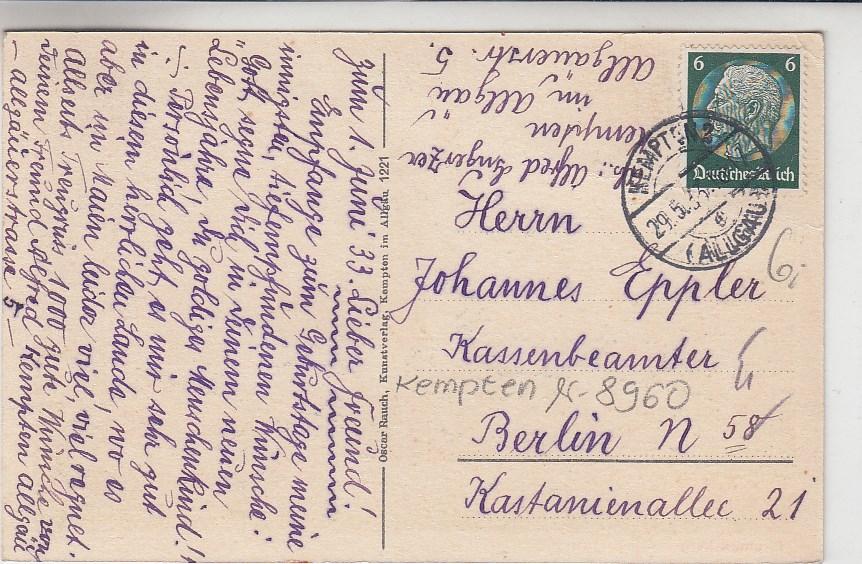 zum 1. Juni 33. Lieber Freund!
Empfange zum Geburtstage meine
innigsten, tiefempfundenen Wünsche:
"Gott segne Dich in Deinem neuen
Lebensjahre, Du goldiges Menschenkind!"
Persönlich geht es mir sehr gut
in diesem herrlichen Lande, wo es
aber im Maien leider viel, viel regnet.
Allseits Treugruss 1000 gute Wünsche von
Deinem Freund Alfred Kempten Allgäu
- Allgäuerstrasse 5 -
Oscar Rauch, Kunstverlag, Kempten im Allgäu 1221
Alfred
Kempten
im Allgäu
Allgäuerstr. 5.
6 6
Deutsches Reich
KEMPTEN 2
29.5.
(ALLGÄU)
Herrn
Johannes Eppler
Kassenbeamter
Kempten 8960
Berlin N 58
Kastanienallee 21